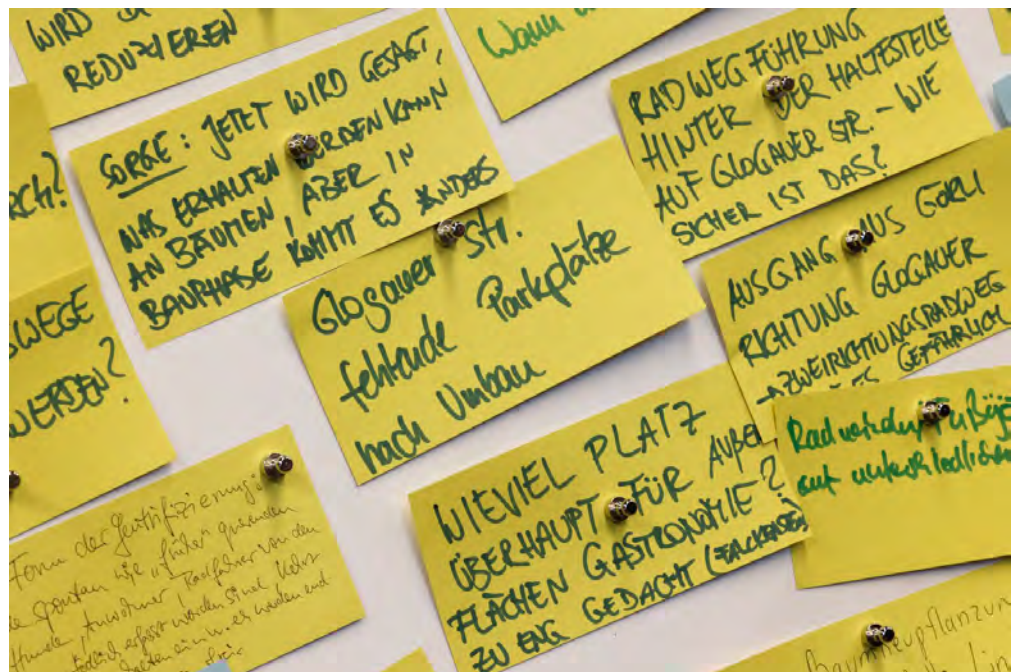 WIRD
REDUZIEREN
Wann
SORGE: JETZT WIRD GESAGT,
WAS ERHALTEN WERDEN KANN
AN BÄUMEN, ABER IN
BAUPHASE KOMMT ES ANDERS
RADWEGFÜHRUNG
HINTER DER HALTESTELLE
AUF GLOGAUER STR. – WIE
SICHER IST DAS?
RCH?
Glogauer Str.
fehlende Parkplätze
nach Umbau
AUSGANG AUS GÖRLI
RICHTUNG GLOGAUER
ZWEIRICHTUNGSRADWEG
ES GEFÄHRLICH
SWEGE
WERDEN?
WIEVIEL PLATZ
ÜBERHAUPT FÜR AUßEN
FLÄCHEN GASTRONOMIE?
ZU ENG GEDACHT
Rad
auf unterschiedlichen
Form der
spontan wie "früher" querenden
Hunde, Anwohner, Radfahrer von den
erfasst worden sind